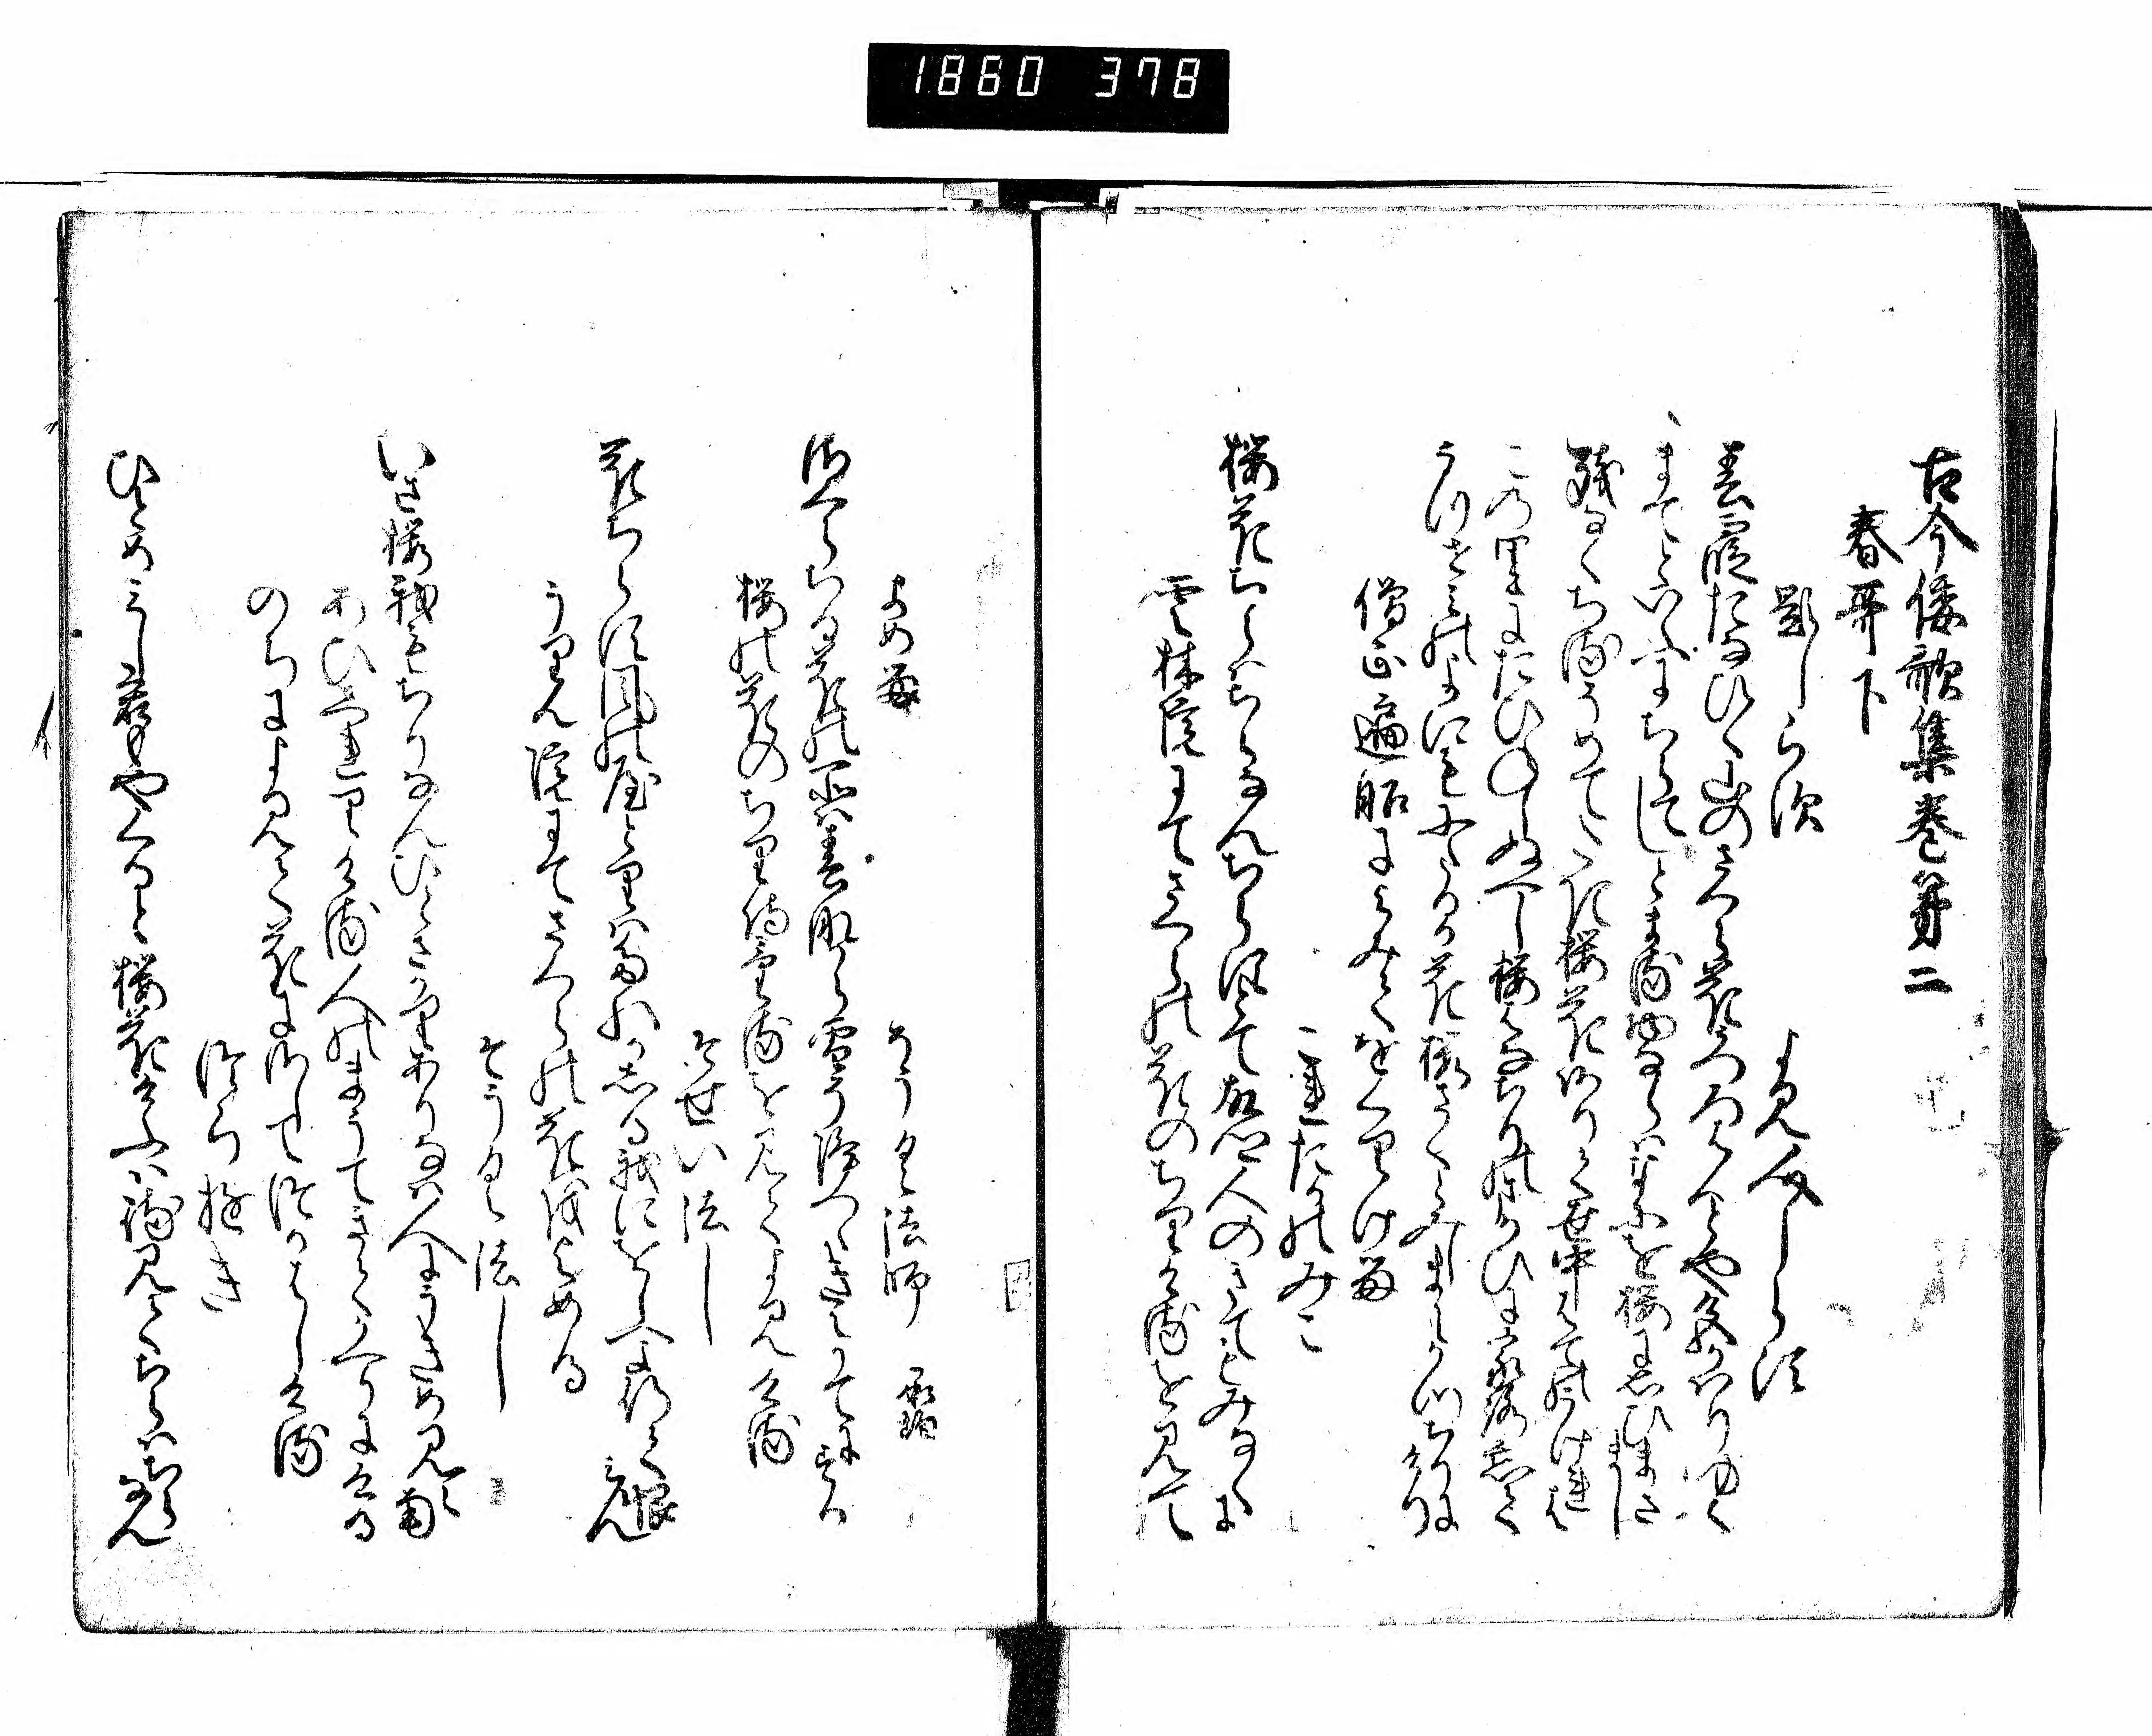 1860 378
古今倭歌集巻第二
春哥下
題しらす
よみ人しらす
春霞たなひく山のさくら花うつろはんとや色かはりゆく
まてといふにちらてしとまる物ならはなにを桜に思ひまさまし
残なくちるそめてたき桜花ありて世中はてのうけれは
この里にたひねしぬへし桜花ちりのまかひに家路忘て
うつせみの世にもにたるか花桜さくとみしまにかつちりにけり
僧正遍昭によみてをくりける
これたかのみこ
桜花ちらはちらなんちらすとて故郷人のきてもみなくに
雲林院にてさくらの花のちりけるを見て
よめる
そうく法師
桜ちる花の所は春なから雪そふりつゝきえかてにする
桜の花のちり侍けるを見てよみける
そせい法し
花ちらす風の屋とりはたれかしる我にをしへよ行て恨みん
うりん院にてさくらの花をよめる
そうく法し
いさ桜我もちりなんひとさかりありなは人にうきめ見えなん
あひしれりける人のまうてきてかへりにける
のちによみて花にさしてつかはしける
つらゆき
ひとめみし君もやくると桜花けふは待見てちらはちらなん